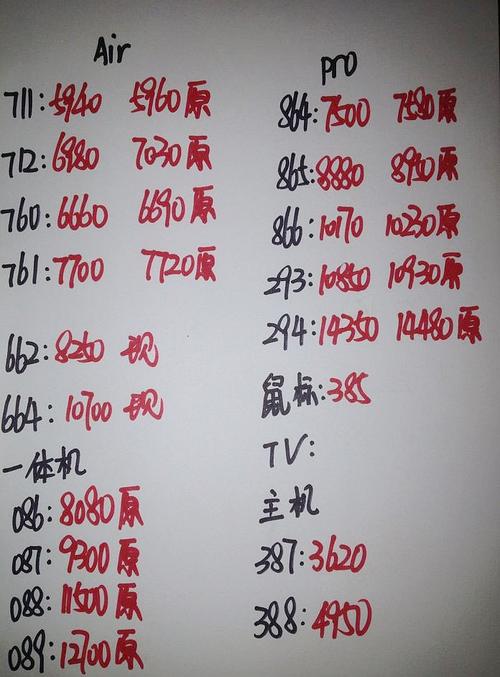 Air
711:5940 5960原
712:6980 7030原
760:6660 6690原
761:7700 7720原
662:8250 现
664:10700 现
一体机
086:8080原
087:9300原
088:11500原
089:12700原
pro
864:7500 7580原
865:8880 8950原
866:10170 10230原
293:10850 10930原
294:14350 14480原
鼠标:385
TV:
主机
387:3620
388:4950